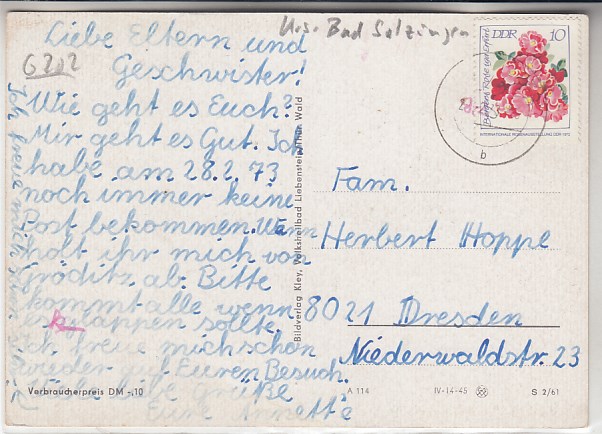 Krs. Bad Salzungen
G202
Liebe Eltern und
Geschwister!
Wie geht es Euch?
Mir geht es Gut. Ich
habe am 28.2.73
noch immer keine
Post bekommen. Wann
holt ihr mich von
Gröditz ab. Bitte
kommt alle wenn
klappen sollte.
Ich freue mich schon
wieder auf Euren Besuch.
Viele liebe Grüße
Eure Annette
Ich freue mich
Verbraucherpreis DM -,10
Bildverlag Kley, Volksheilbad Liebenstein Thür Wald
DDR 10
INTERNATIONALE ROSENAUSSTELLUNG DDR 1972
b
Fam.
Herbert Hoppe
8021 Dresden
Niederwaldstr. 23
A 114
IV-14-45
S 2/61